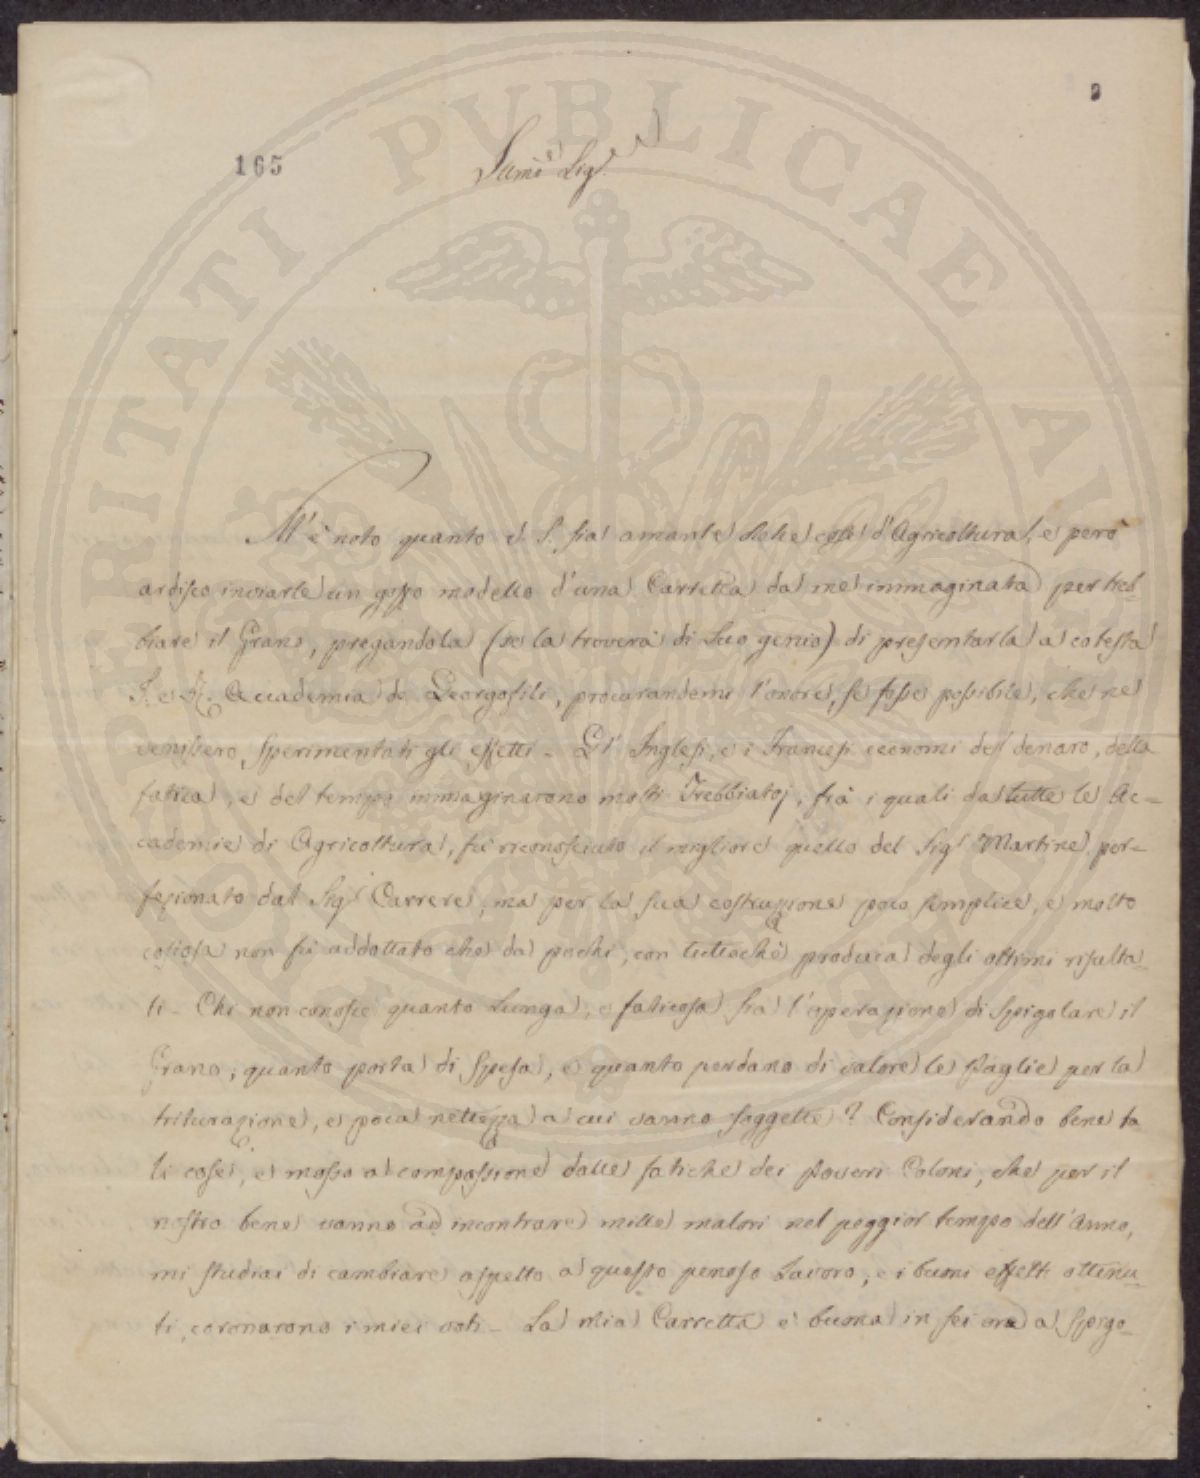 2
165
Sig.
PROSPERITATI PUBLICAE AUGENDAE
M'è noto quanto V. S. sia amante delle cose d'Agricoltura, e però
ardisco inviarle un modello d'una Carretta da me immaginata per treb-
biare il Grano, pregandola (se la troverà di Suo genio) di presentarla a cotesta
I. e R. Accademia de Georgofili, procurandomi l'onore, se fosse possibile, che ne
venissero sperimentati gli effetti - Gl' Inglesi, e i Francesi economi del denaro, della
fatica, e del tempo immaginarono molti Trebbiatoj, frà i quali da tutte le Ac-
cademie di Agricoltura, fù riconosciuto il migliore quello del Sigr Martine, per-
fezionato dal Sigr Carrere, ma per la sua costruzione poco semplice, e molto
costosa non fù addottato che da pochi, con tuttochè produca degli ottimi risulta-
ti - Chi non conosce quanto lunga, e faticosa sia l'operazione di Spigolare il
Grano; quanto porta di Spesa, e quanto perdano di valore le Paglie per la
triturazione, e poca nettezza a cui vanno soggette? Considerando bene ta
li cose, e mosso a compassione dalle fatiche dei Poveri Coloni, che per il
nostro bene vanno ad incontrare mille malori nel peggior tempo dell'Anno,
mi studiai di cambiare aspetto a questo penoso Lavoro, e i buoni effetti ottenu-
ti, coronarono i miei voti - La mia Carretta è buona in sei ore a Spigo-